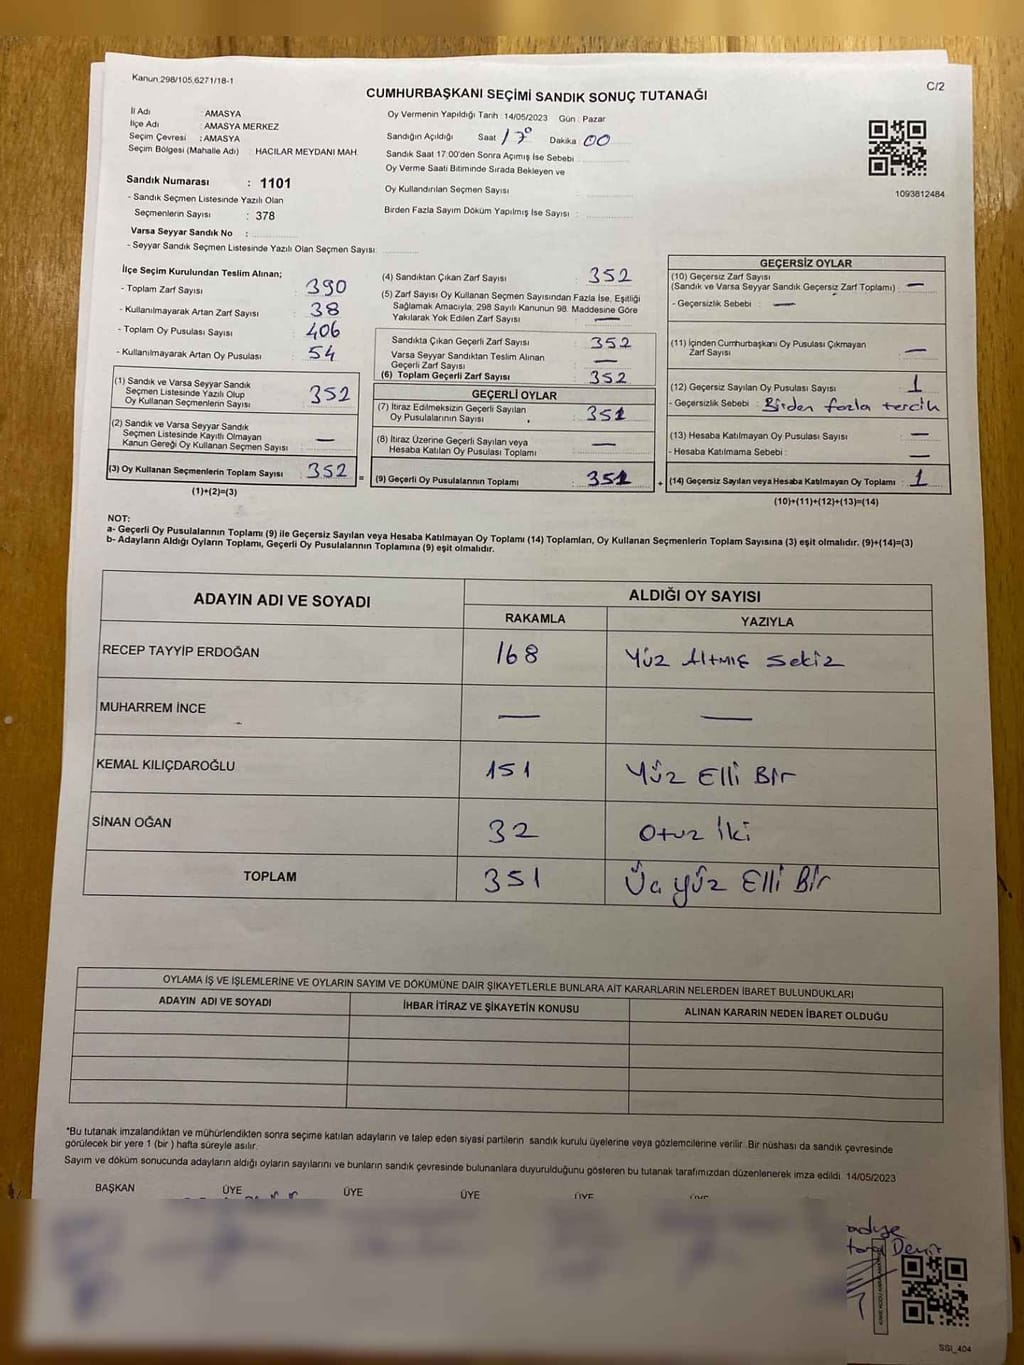 Kanun:298/105,6271/18-1
C/2
CUMHURBAŞKANI SEÇİMİ SANDIK SONUÇ TUTANAĞI
İl Adı : AMASYA
İlçe Adı : AMASYA MERKEZ
Seçim Çevresi : AMASYA
Seçim Bölgesi (Mahalle Adı) : HACILAR MEYDANI MAH.
Sandık Numarası : 1101
- Sandık Seçmen Listesinde Yazılı Olan
Seçmenlerin Sayısı : 378
Varsa Seyyar Sandık No :
- Seyyar Sandık Seçmen Listesinde Yazılı Olan Seçmen Sayısı:
Oy Vermenin Yapıldığı Tarih : 14/05/2023 Gün : Pazar
Sandığın Açıldığı Saat : 17⁰ Dakika : 00
Sandık Saat 17.00'den Sonra Açımış İse Sebebi :
Oy Verme Saati Bitiminde Sırada Bekleyen ve
Oy Kullandırılan Seçmen Sayısı :
Birden Fazla Sayım Döküm Yapılmış İse Sayısı :
1093812484
İlçe Seçim Kurulundan Teslim Alınan;
- Toplam Zarf Sayısı : 390
- Kullanılmayarak Artan Zarf Sayısı : 38
- Toplam Oy Pusulası Sayısı : 406
- Kullanılmayarak Artan Oy Pusulası : 54
(1) Sandık ve Varsa Seyyar Sandık
Seçmen Listesinde Yazılı Olup
Oy Kullanan Seçmenlerin Sayısı : 352
(2) Sandık ve Varsa Seyyar Sandık
Seçmen Listesinde Kayıtlı Olmayan
Kanun Gereği Oy Kullanan Seçmen Sayısı : —
(3) Oy Kullanan Seçmenlerin Toplam Sayısı : 352
(1)+(2)=(3)
=
(4) Sandıktan Çıkan Zarf Sayısı : 352
(5) Zarf Sayısı Oy Kullanan Seçmen Sayısından Fazla İse, Eşitliği
Sağlamak Amacıyla, 298 Sayılı Kanunun 98. Maddesine Göre
Yakılarak Yok Edilen Zarf Sayısı : —
Sandıkta Çıkan Geçerli Zarf Sayısı : 352
Varsa Seyyar Sandıktan Teslim Alınan
Geçerli Zarf Sayısı : —
(6) Toplam Geçerli Zarf Sayısı : 352
GEÇERLİ OYLAR
(7) İtiraz Edilmeksizin Geçerli Sayılan
Oy Pusulalarının Sayısı : 351
(8) İtiraz Üzerine Geçerli Sayılan veya
Hesaba Katılan Oy Pusulası Toplamı : —
(9) Geçerli Oy Pusulalarının Toplamı : 351
+
GEÇERSİZ OYLAR
(10) Geçersiz Zarf Sayısı
(Sandık ve Varsa Seyyar Sandık Geçersiz Zarf Toplamı) : —
- Geçersizlik Sebebi : —
(11) İçinden Cumhurbaşkanı Oy Pusulası Çıkmayan
Zarf Sayısı : —
(12) Geçersiz Sayılan Oy Pusulası Sayısı : 1
- Geçersizlik Sebebi : Birden fazla tercih
(13) Hesaba Katılmayan Oy Pusulası Sayısı : —
- Hesaba Katılmama Sebebi : —
(14) Geçersiz Sayılan veya Hesaba Katılmayan Oy Toplamı : 1
(10)+(11)+(12)+(13)=(14)
NOT:
a- Geçerli Oy Pusulalarının Toplamı (9) ile Geçersiz Sayılan veya Hesaba Katılmayan Oy Toplamı (14) Toplamları, Oy Kullanan Seçmenlerin Toplam Sayısına (3) eşit olmalıdır. (9)+(14)=(3)
b- Adayların Aldığı Oyların Toplamı, Geçerli Oy Pusulalarının Toplamına (9) eşit olmalıdır.
ADAYIN ADI VE SOYADI
ALDIĞI OY SAYISI
RAKAMLA YAZIYLA
RECEP TAYYİP ERDOĞAN 168 Yüz Altmış Sekiz
MUHARREM İNCE — —
KEMAL KILIÇDAROĞLU 151 Yüz Elli Bir
SİNAN OĞAN 32 Otuz İki
TOPLAM 351 Üç yüz Elli Bir
OYLAMA İŞ VE İŞLEMLERİNE VE OYLARIN SAYIM VE DÖKÜMÜNE DAİR ŞİKAYETLERLE BUNLARA AİT KARARLARIN NELERDEN İBARET BULUNDUKLARI
ADAYIN ADI VE SOYADI İHBAR İTİRAZ VE ŞİKAYETİN KONUSU ALINAN KARARIN NEDEN İBARET OLDUĞU
*Bu tutanak imzalandıktan ve mühürlendikten sonra seçime katılan adayların ve talep eden siyasi partilerin sandık kurulu üyelerine veya gözlemcilerine verilir. Bir nüshası da sandık çevresinde
görülecek bir yere 1 (bir ) hafta süreyle asılır.
Sayım ve döküm sonucunda adayların aldığı oyların sayılarını ve bunların sandık çevresinde bulunanlara duyurulduğunu gösteren bu tutanak tarafımızdan düzenlenerek imza edildi. 14/05/2023
BAŞKAN ÜYE ÜYE ÜYE ÜYE ÜYE
SSI_404